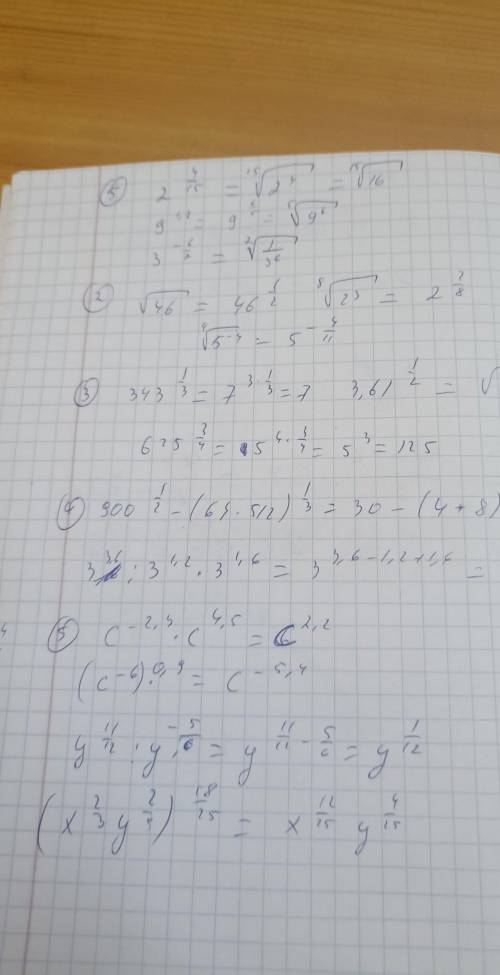 ⑤ 2^{4/15} = \sqrt[15]{2^4} = \sqrt[15]{16}
9^{1,2} = 9^{6/5} = \sqrt[5]{9^6}
② √46 = 46^{1/2} \sqrt[8]{2^3} = 2^{3/8}
5^{-4/11}
③ 343^{1/3} = 7^{3·1/3} = 7 3,61^{1/2} = √
625^{3/4} = 5^{4·3/4} = 5^3 = 125
④ 900^{1/2} - (64·512)^{1/3} = 30 - (4+8)
3^{3,6} : 3^{1,2} · 3^{1,6} = 3^{3,6-1,2+1,6} =
⑤ c^{-2,3} · c^{4,5} = c^{2,2}
(c^{-6})^{0,9} = c^{-5,4}
y^{11/12} : y^{-5/6} = y^{11/12 - 5/6} = y^{1/12}
(x^{2/3} y^{2/9})^{18/15} = x^{12/15} y^{4/15}